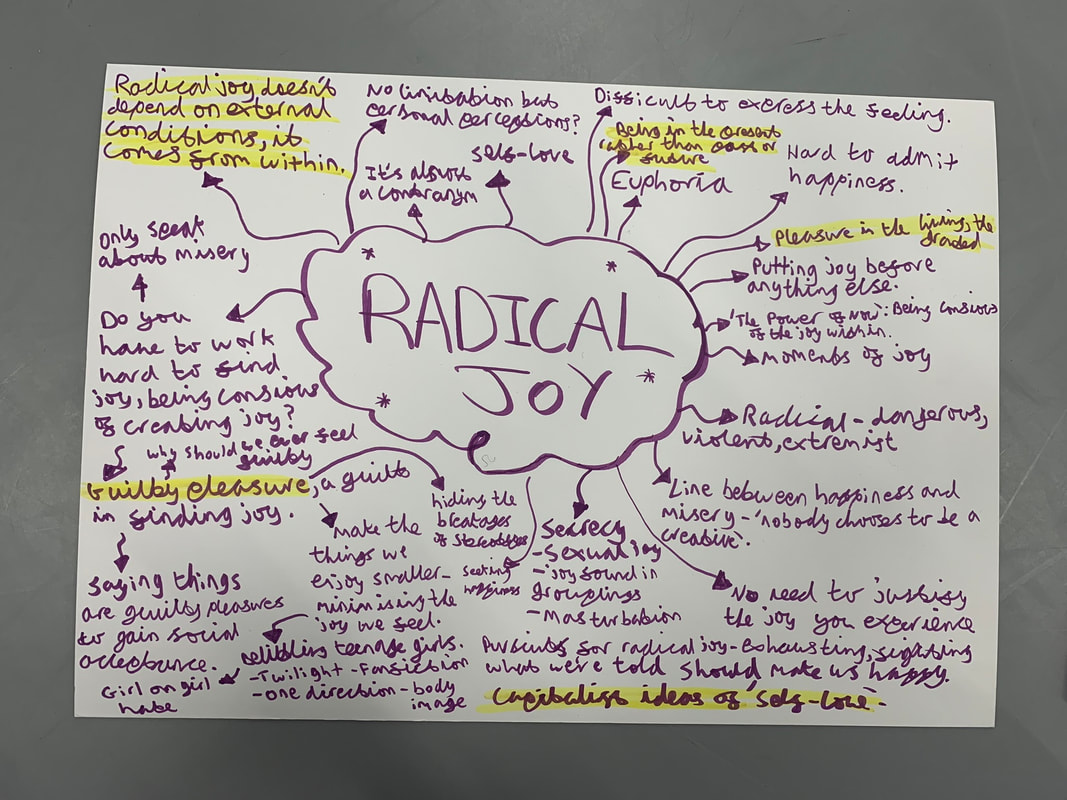 Radical joy doesn't
depend on external
conditions, it
comes from within.
No limitation but
personal perceptions?
It's almost
a contranym
self-love
Difficult to express the feeling.
Being in the present
rather than past or
future
Euphoria
Hard to admit
happiness.
Pleasure in the living, the
Putting joy before
anything else.
'The Power of Now': Being consious
of the joy within.
moments of joy
Radical - dangerous,
violent, extremist
Line between happiness and
misery - 'nobody chooses to be a
creative'.
No need to justify
the joy you experience
RADICAL
JOY
Only speak
about misery
Do you
have to work
hard to find
joy, being consious
of creating joy?
why should we ever feel
guilty
Guilty pleasure, a guilt
in finding joy.
saying things
are guilty pleasures
to gain social
acceptance.
Girl on girl
hate
make the
things we
enjoy smaller -
minimising the
joy we feel.
belittling teenage girls.
- Twilight - Fanfiction
- one direction - body
image
hiding the
breakages
of stereotypes
seeking
happiness
Secrecy
- sexual joy
- joy found in
groupings
- masturbation
Pursuits for radical joy - exhausting, fighting
what we're told should make us happy.
Capitalist ideas of 'self-love'.